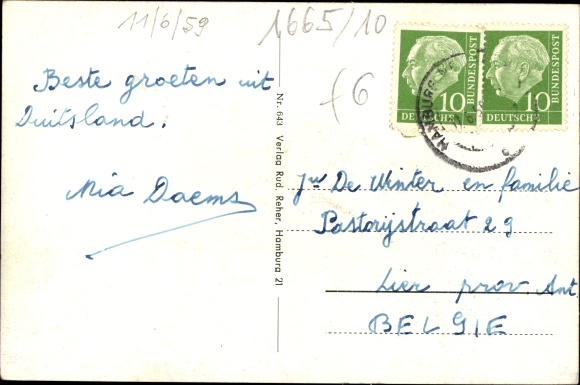 11/6/59
1665/10
f6
Beste groeten uit
Duitsland.
Mia Daems
Nr. 643 Verlag Rud. Reher, Hamburg 21
10
BUNDESPOST
DEUTSCHE
10
BUNDESPOST
DEUTSCHE
HAMBURG
Jw De Winter en familie
Pastorijstraat 29
Lier prov. Ant.
BELGIE